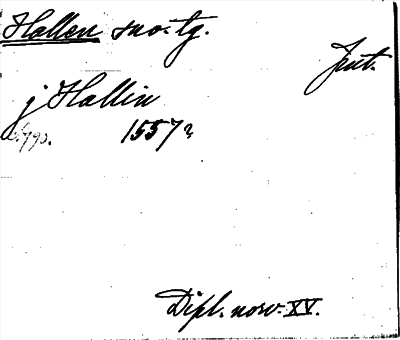 Hallen sno. tg.
Jmt.
j Hallin
s. 790. 1557?
Dipl. norv. XV.